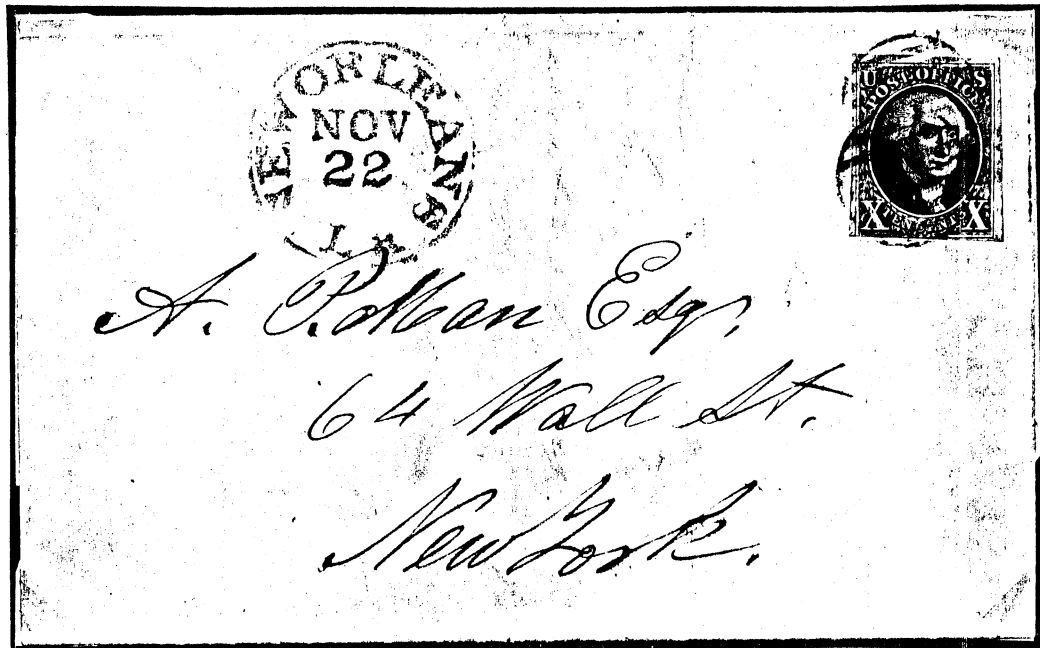 NEW ORLEANS
NOV
22
U S
POST OFFICE
X TEN CENTS X
A. P. Man Esqr.
64 Wall St.
New York.